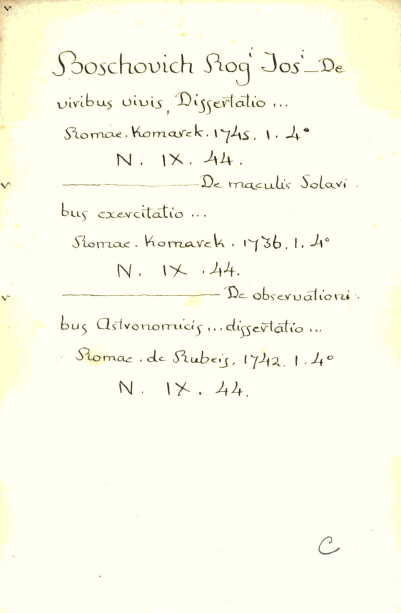 Boschovich Rog^i Jos^i_De
viribus vivis, Dissertatio ...
Romae. Komarek. 1745. 1. 4°
N. IX. 44.
———— De maculis Solari
bus exercitatio ...
Romae. Komarek. 1736. 1. 4°
N. IX. 44.
———— De observationi
bus Astronomicis ... dissertatio ...
Romae. de Rubeis. 1742. 1. 4°
N. IX. 44.
C